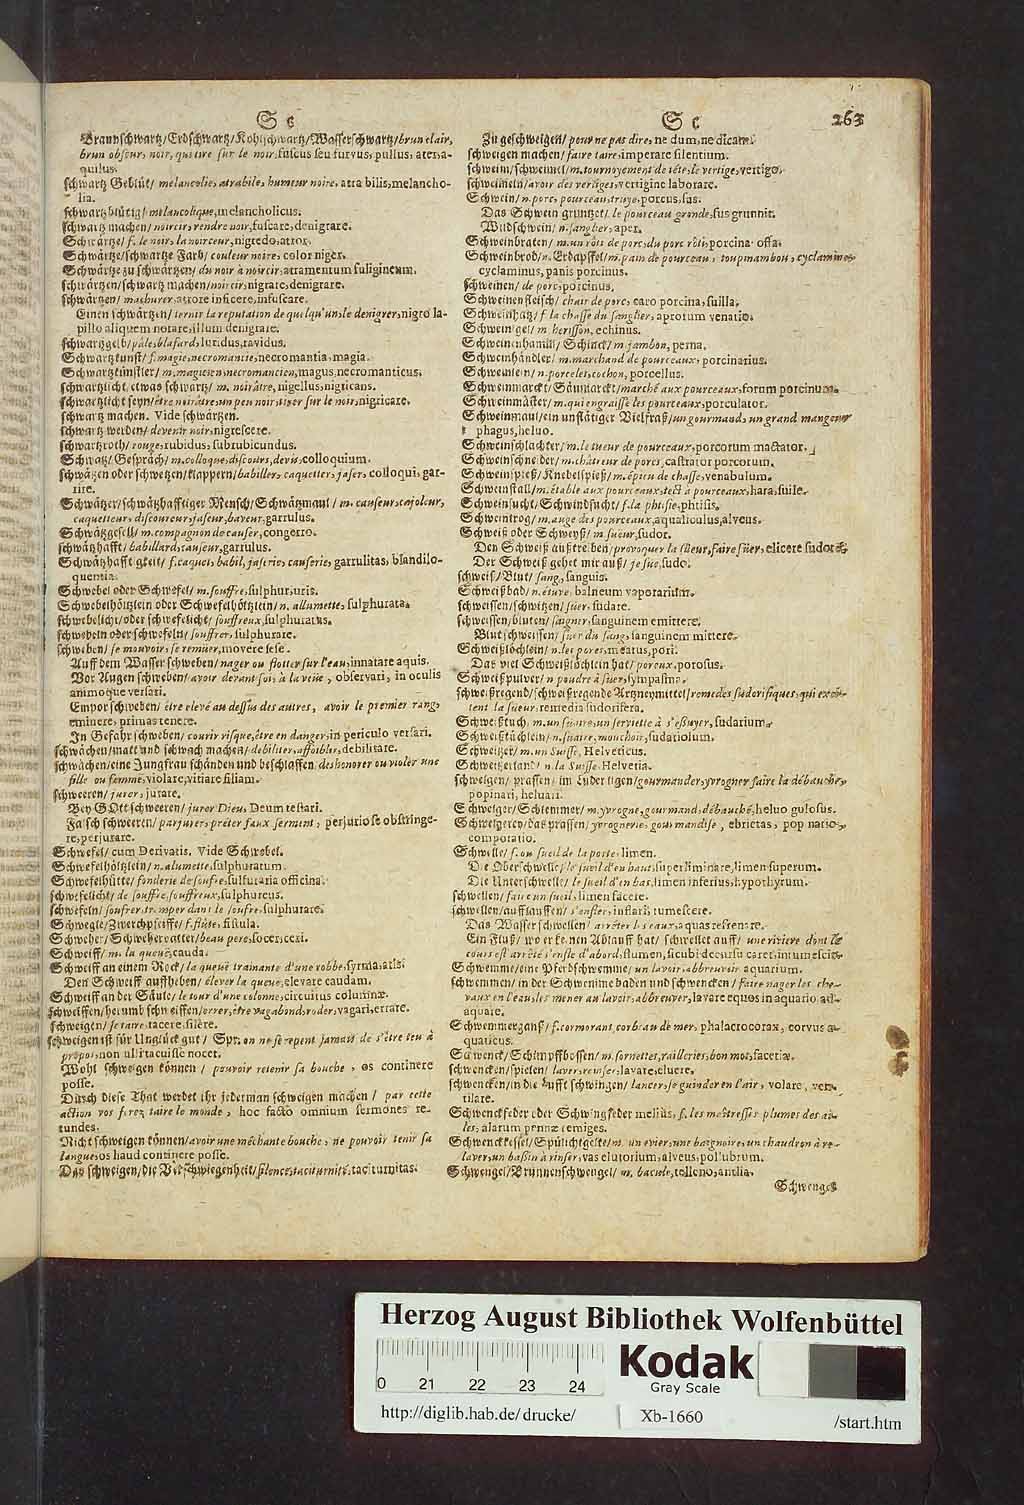 S c
Braunschwartz/Erdschwartz/Kohlschwartz/Wasserschwartz/brun clair,
brun obscur, noir, qui tire sur le noir, fuscus seu furvus, pullus, ater, a-
quilus.
schwartz Geblüt/ melancolie, atrabile, humeur noire, atra bilis, melancho-
lia.
schwartzblütig/ melancolique, melancholicus.
schwartz machen/ noircir, rendre noir, fuscare, denigrare.
Schwärtze/ f. le noir, la noirceur, nigredo, atror.
Schwärtze/schwartze Farb/ couleur noire, color niger.
Schwärtze zu schwärtzen/ du noir à noircir, atramentum fuligineum.
schwärtzen/schwartz machen/ noircir, nigrare, denigrare.
schwärtzen/ machurer, atrore inficere, infuscare.
Einen schwärtzen/ ternir la reputation de quelqu'un, le denigrer, nigro la-
pillo aliquem notare, illum denigrare.
schwartzgelb/ pâle, blafard, luridus, ravidus.
Schwartzkunst/ f. magie, necromantie, necromantia, magia.
Schwartzkünstler/ m. magicien, necromancien, magus, necromanticus.
schwartzlicht, etwas schwartz/ m. noirâtre, nigellus, nigricans.
schwartzlicht seyn/ être noirâtre, un peu noir, tirer sur le noir, nigricare.
schwartz machen. Vide schwärtzen.
schwartz werden/ devenir noir, nigrescere.
schwartzroth/ rouge, rubidus, subrubicundus.
Schwatz/Gespräch/ m. colloque, discours, devis, colloquium.
schwätzen oder schwetzen/klappern/ babiller, caqueter, jaser, colloqui, gar-
rire.
Schwätzer/schwätzhafftiger Mensch/Schwätzmaul/ m. causeur, cajoleur,
caquetteur, discoureur, jaseur, baveur, garrulus.
Schwätzgesell/ m. compagnon de causer, congerro.
schwätzhafft/ babillard, causeur, garrulus.
Schwätzhafftigkeit/ f. caquet, babil, jaserie, causerie, garrulitas, blandilo-
quentia.
Schwebel oder Schwefel/ m. souffre, sulphur, uris.
Schwebelhöltzlein oder Schwefelhöltzlein/ n. allumette, sulphurata.
schwebelicht/oder schwefelicht/ souffreux, sulphuratus.
schwebeln oder schwefeln/ souffrer, sulphurare.
schweben/ se mouvoir, se remüer, movere sese.
Auff dem Wasser schweben/ nager ou flotter sur l'eau, innatare aquis.
Vor Augen schweben/ avoir devant soi, à la veüe, observari, in oculis
animoque versari.
Empor schweben/ être elevé au dessus des autres, avoir le premier rang,
eminere, primas tenere.
In Gefahr schweben/ courir risque, être en danger, in periculo versari.
schwächen/matt und schwach machen/ debiliter, affoiblir, debilitare.
schwächen/eine Jungfrau schänden und beschlaffen, deshonorer ou violer une
fille ou femme, violare, vitiare filiam.
schweeren/ jurer, jurare.
Bey GOtt schweeren/ jurer Dieu, Deum testari.
Falsch schweeren/ parjurer, prêter faux serment, perjurio se obstringe-
re, perjurare.
Schwefel/ cum Derivatis. Vide Schwebel.
Schwefelhöltzlein/ n. alumette, sulphuratum
Schwefelhütte/ fonderie de soufre, sulfuraria officina.
schwefelicht/ de souffre, souffreux, sulphureus.
schwefeln/ soufrer, tremper dans le soufre, sulphurare.
Schwegle/Zwerchpfeiffe/ f. flûte, fistula.
Schweher/Schwehervatter/ beau pere, socer, ceri.
Schweiff/ m. la queuë, cauda.
Schweiff an einem Rock/ la queuë trainante d'une robbe, syrma, atis.
Den Schweiff auffheben/ élever la queuë, elevare caudam.
Schweiff an der Säule/ le tour d'une colonne, circuitus columnæ.
schweiffen/herumb schweiffen/ errer, être vagabond, roder, vagari, errare.
schweigen/ se taire, tacere, silere.
schweigen ist für Unglück gut/ Spr. on ne se repent jamais de s'être teu à
propos, non ulli tacuisse nocet.
Wohl schweigen können/ pouvoir retenir sa bouche, os continere
posse.
Durch diese That werdet ihr jederman schweigen machen/ par cette
action vos ferez taire le monde, hoc facto omnium sermones re-
tundes.
Nicht schweigen können/ avoir une méchante bouche, ne pouvoir tenir sa
langue, os haud continere posse.
Das schweigen/die Verschwiegenheit/ silence, taciturnité, taciturnitas.
S c 263
Zu geschweigen/ pour ne pas dire, ne dum, ne dicam.
schweigen machen/ faire taire, imperare silentium.
schweim/schweimel/ m. tournoyement de tête, le vertige, vertigo.
schweimeln/ avoir des vertiges, vertigine laborare.
Schwein/ n. porc, pourceau, truye, porcus, sus.
Das Schwein gruntzet/ le pourceau gronde, sus grunnit.
Wildschwein/ n. sanglier, aper.
Schweinbraten/ m. un rôts de porc, du porc rôti, porcina offa.
Schweinbrod/ n. Erdäpffel/ m. pain de pourceau, toupinambou, cyclamines
cyclaminus, panis porcinus.
schweinen/ de porc, porcinus.
Schweinenfleisch/ chair de porc, caro porcina, suilla.
Schweinhatz/ f. la chasse du sanglier, aprorum venatio.
Schweinigel/ m. herisson, echinus.
Schweinenhamm/ Schinck/ m. jambon, perna.
Schweinhändler/ m. marchand de pourceaux, porcinarius.
Schweinlein/ n. porcelet, cochon, porcellus.
Schweinmarckt/Säumarckt/ marché aux pourceaux, forum porcinum.
Schweinmäster/ m. qui engraisse les pourceaux, porculator.
Schweinmaul/ein unflätiger Vielfraß/ un gourmand, un grand mangeur
phagus, heluo.
Schweinschlachter/ m. le tueur de pourceaux, porcorum mactator.
Schweinschneider/ m. châtreur de porcs, castrator porcorum.
Schweinspieß/Knebelspieß/ m. épieu de chasse, venabulum.
Schweinstall/ m. étable aux pourceaux, tect à pourceaux, hara, suile.
Schweinsucht/Schwindsucht/ f. la phtisie, phtisis.
Schweintrog/ m. auge des pourceaux, aqualiculus, alveus.
Schweiß oder Schweyß/ m. sueur, sudor.
Den Schweiß außtreiben/ provoquer la sueur, faire süer, elicere sudorem
Der Schweiß gehet mir auß/ je sue, sudo.
schweiß/Blut/ sang, sanguis.
Schweißbad/ n. étuve, balneum vaporarium.
schweissen/schwitzen/ süer, sudare.
schweissen/bluten/ saigner, sanguinem emittere.
Blut schweissen/ suer du sang, sanguinem mittere.
Schweißlöchlein/ n. les pores, meatus, pori.
Das viel Schweißlöchlein hat/ poreux, porosus.
Schweißpulver/ n. poudre à suer, sympasma.
schweißregend/schweißregende Artzneymittel/ remedes sudorifiques, qui excitent
la sueur, remedia sudorifera.
Schweißtuch, m. un suaire, un serviette à s'essuyer, sudarium.
Schweißtüchlein/ n. suaire, mouchoir, sudariolum.
Schweitzer/ m. un Suisse, Helveticus.
Schweitzerland/ n. la Suisse, Helvetia.
schwelgen/ prassen/ im Luder ligen/ gourmander, yvrogner, faire la débauche,
popinari, heluari.
Schwelger/Schlemmer/ m. yvrogne, gourmand, débauché, heluo gulosus.
Schwelgerey/das prassen/ yvrognerie, gourmandise, ebrietas, popinatio,
compotatio.
Schwelle/ f. ou sueil de la porte, limen.
Die Oberschwelle/ le sueil d'en haut, superliminare, limen superum.
Die Unterschwelle/ le sueil d'en bas, limen inferius, hypothyrum.
schwellen/ faire un sueil, limen facere.
schwellen/aufflauffen/ s'enfler, inflari, tumescere.
Das Wasser schwellen/ arrêter les eaux, aquas refrenare.
Ein Fluß/ wo er keinen Ablauff hat/ schwellet auff/ une riviere dont le
cours est arrêté s'enfle d'abord, flumen, sicubi decursu caret, intumescit.
Schwemme/eine Pferdschwemme/ un lavoir, abbreuvoir aquarium.
schwemmen/ in der Schwemme baden und schwencken/ faire nager les che-
vaux en l'eau, les mener au lavoir, abbreuver, lavare equos in aquario, ad-
aquare.
Schwemmerganß/ f. cormorant, corbeau de mer, phalacrocorax, corvus a-
quaticus.
Schwenck/Schimpffbossen/ m. sornettes, railleries, bon mot, facetiæ.
schwencken/spielen/ laver, rinser, lavare, eluere.
schwencken/in die Lufft schwingen/ lancer, se guinder en l'air, volare, ven-
tilare.
Schwenckfeder oder Schwingfeder melius, f. les maîtresses plumes des ai-
les, alarum pennæ remiges.
Schwenckkessel/Spülichtgelte/ m. un evier, une baignoire, un chaudron à re-
laver, un bassin à rinser, vas elutorium, alveus, pollubrum.
Schwengel/Brunnenschwengel/ m. bacule, tolleno, antlia.
Schwengel
Herzog August Bibliothek Wolfenbüttel
0 21 22 23 24
Kodak
Gray Scale
http://diglib.hab.de/drucke/ Xb-1660 /start.htm